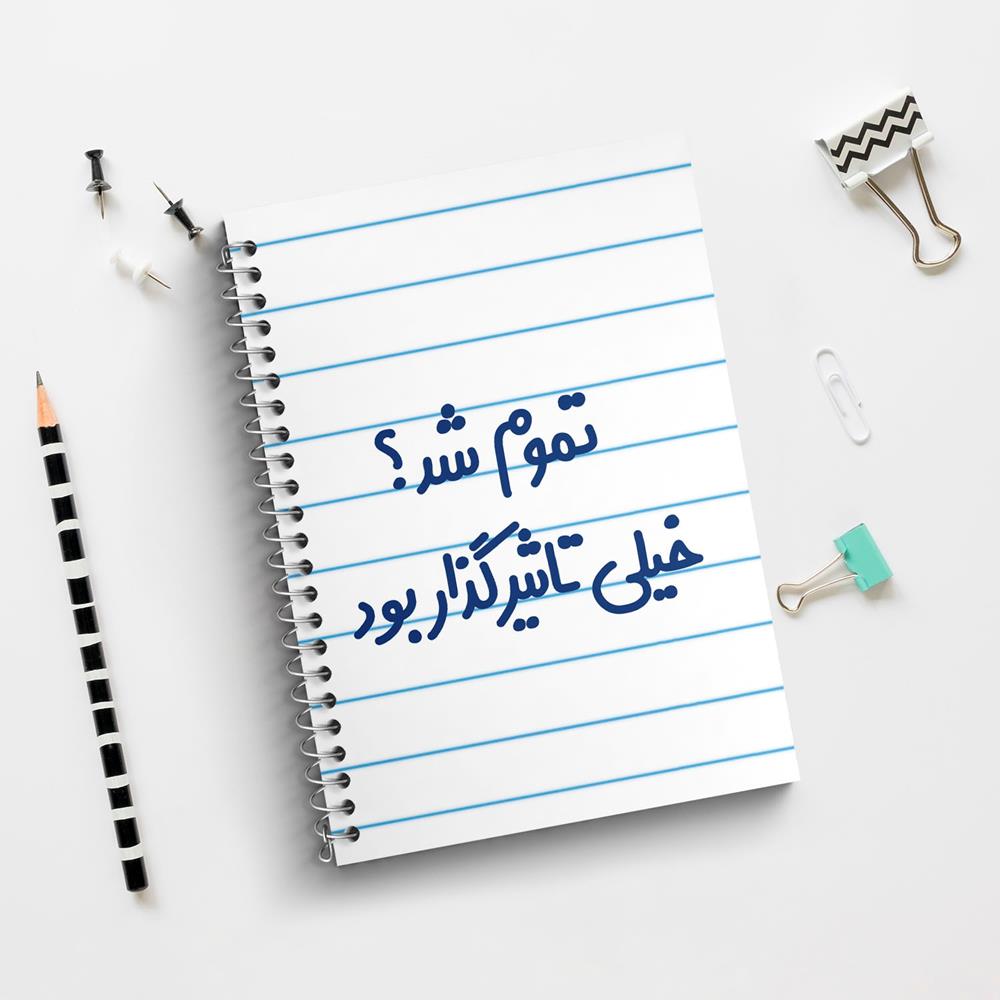 تموم شد؟
خیلی تاثیرگذار بود